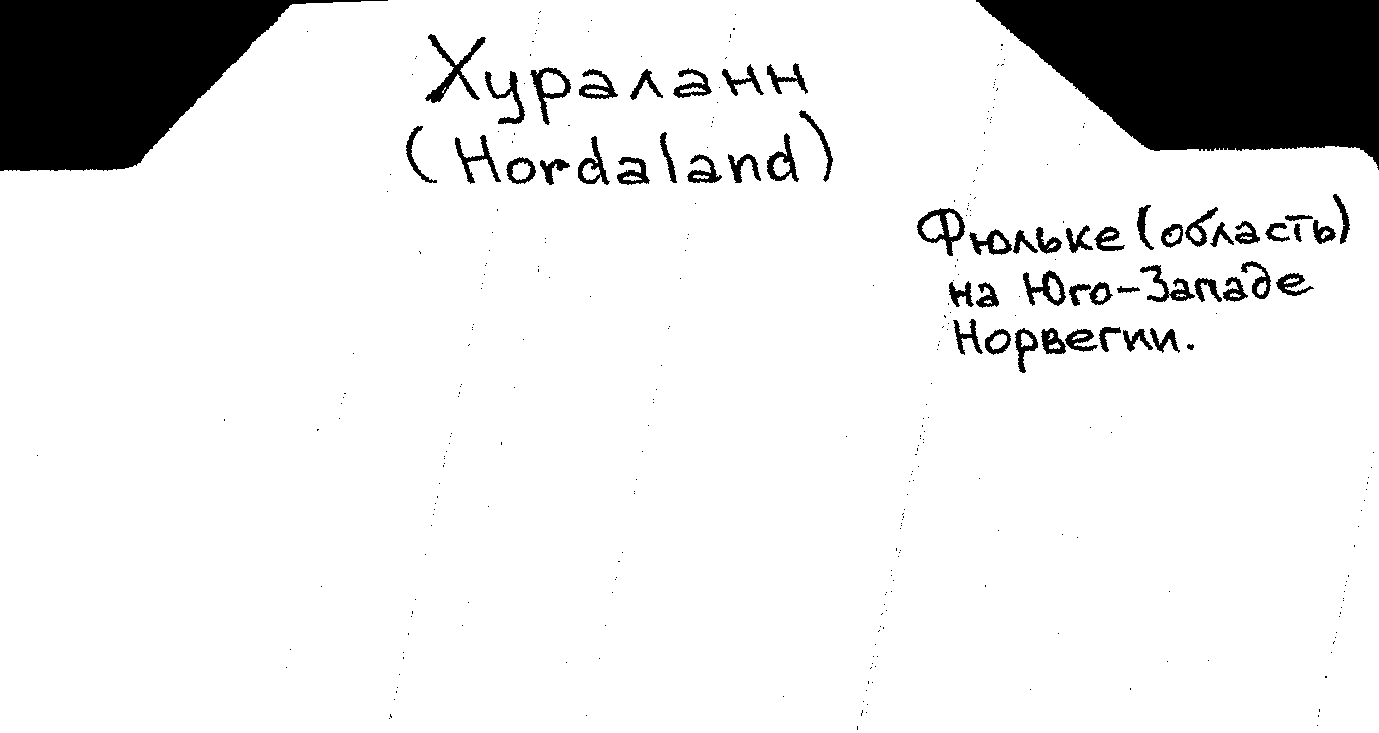 Хураланн
(Hordaland)
Фюльке (область)
на Юго-Западе
Норвегии.